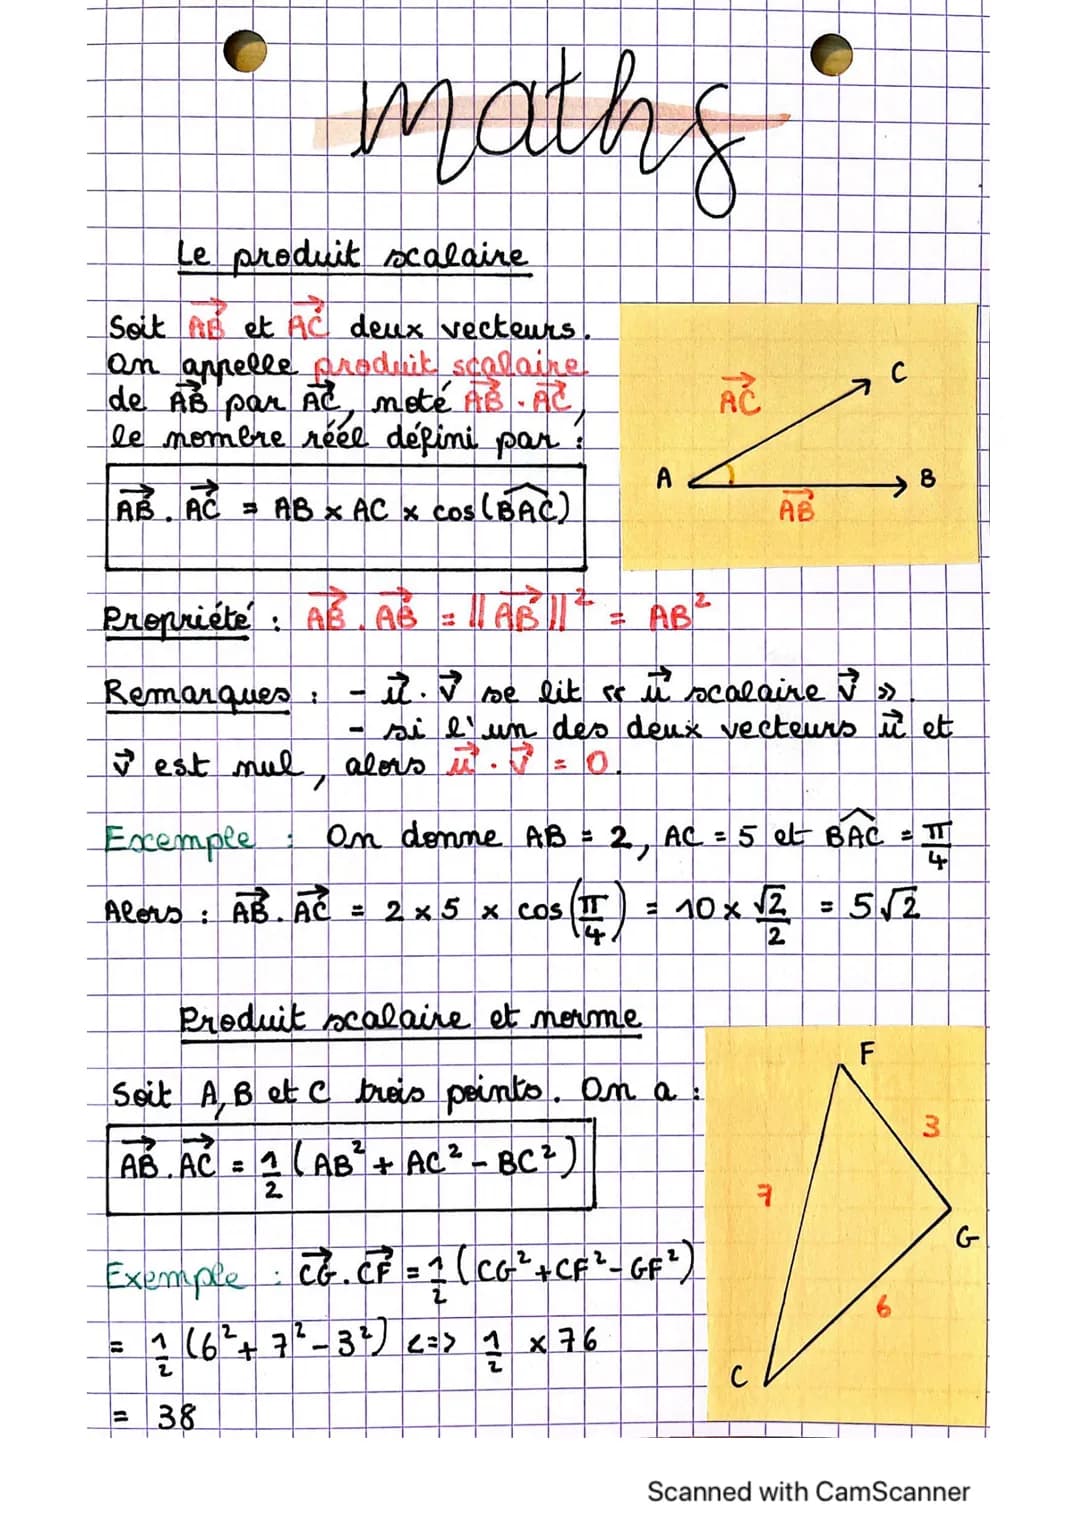 maths
Le produit scalaire
Soit AB→ et AC→ deux vecteurs.
On appelle produit scalaire
de AB→ par AC→, noté AB→ . AC→,
le nombre réél défini par :
AB→ . AC→ = AB x AC x cos(BAC^)
C
AC→
A
B
AB→
Propriété : AB→ . AB→ = ||AB→||² = AB²
Remarques : - u→ . v→ se lit « u→ scalaire v→ ».
- si l'un des deux vecteurs u→ et
v→ est nul, alors u→ . v→ = 0.
Exemple : On donne AB = 2, AC = 5 et BAC^ = π/4
Alors : AB→ . AC→ = 2 x 5 x cos(π/4) = 10 x √2/2 = 5√2
Produit scalaire et norme
Soit A, B et C trois points. On a :
AB→ . AC→ = 1/2 (AB² + AC² - BC²)
F
3
7
G
6
C
Exemple : CG→ . CF→ = 1/2 (CG² + CF² - GF²)
= 1/2 (6² + 7² - 3²) <=> 1/2 x 76
= 38
Scanned with CamScanner